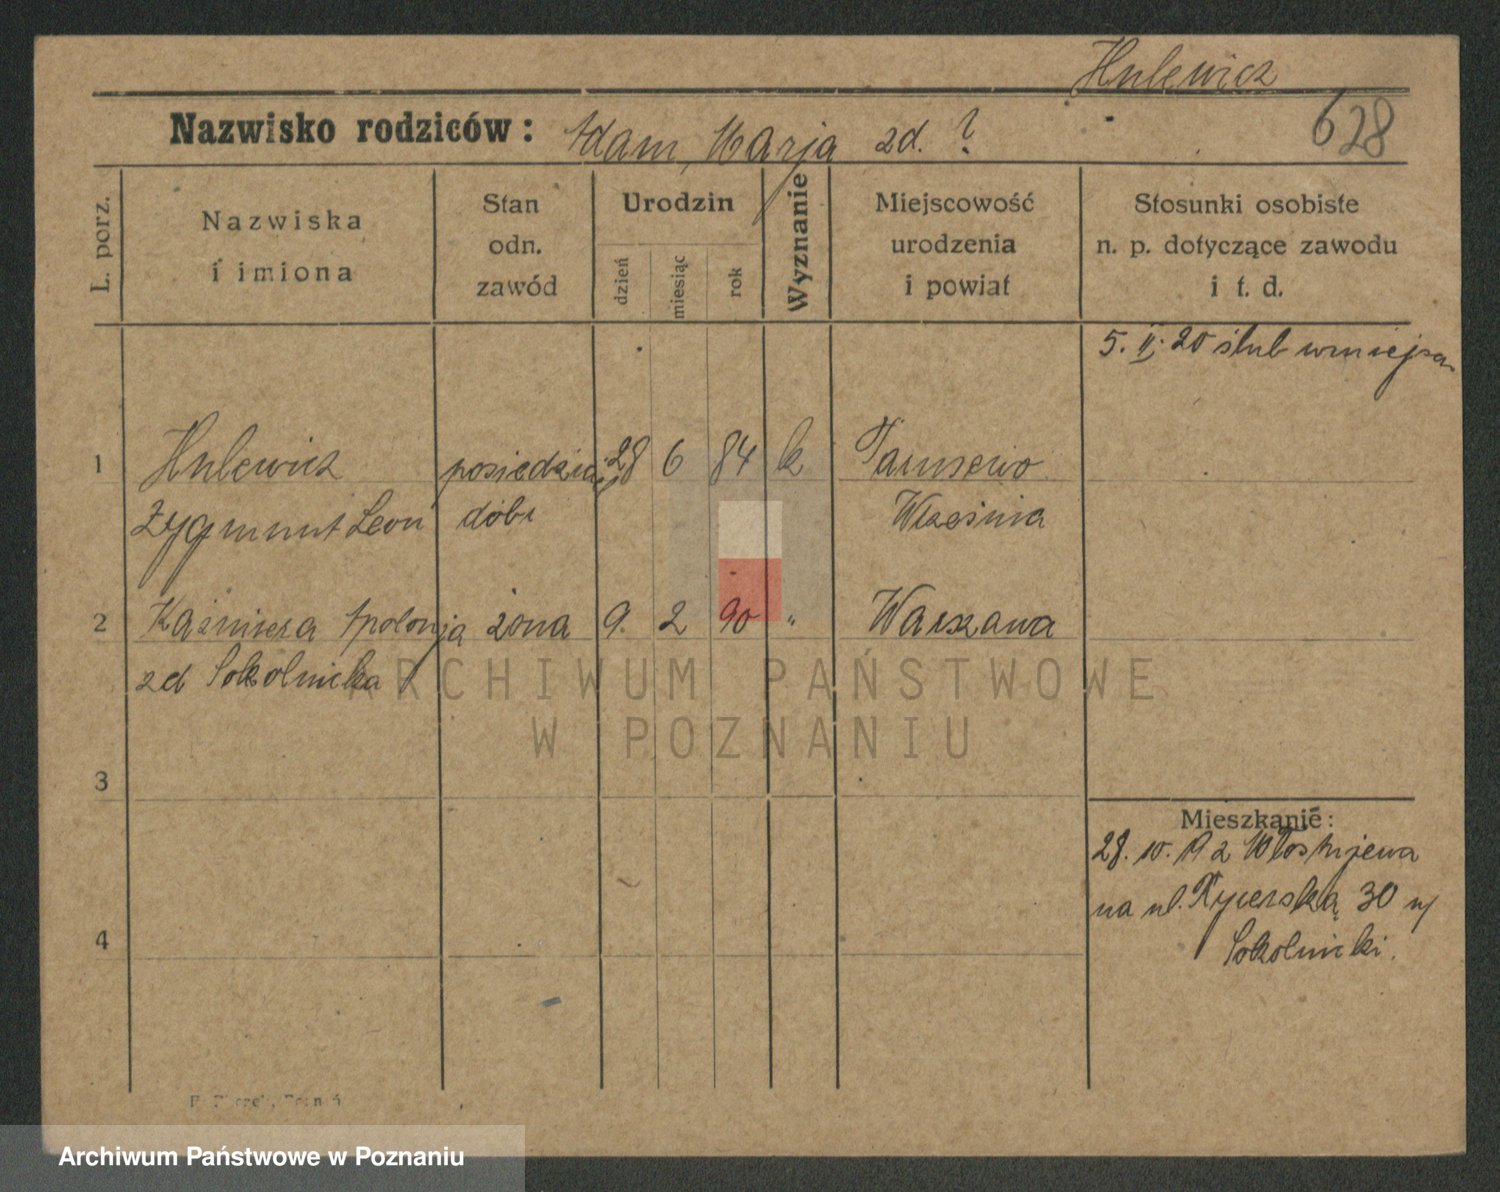 Hulewicz
628
Nazwisko rodziców: Adam, Marja zd. ?
L. porz.
Nazwiska i imiona
Stan odn. zawód
Urodzin
dzień
miesiąc
rok
Wyznanie
Miejscowość urodzenia i powiat
Stosunki osobiste n. p. dotyczące zawodu i t. d.
5. II. 20 ślub w miejsc.
1 Hulewicz 28 6 84 k
Zygmunt Leon dóbr Września
2 Kaźmiera Apolonja żona 9. 2 90 " Warszawa
zd Sokolnicka
ARCHIWUM PAŃSTWOWE
W POZNANIU
3
Mieszkanie:
28. 10. 19 z
na ul. Rycerską 30
4
Sokolnicki.
Archiwum Państwowe w Poznaniu